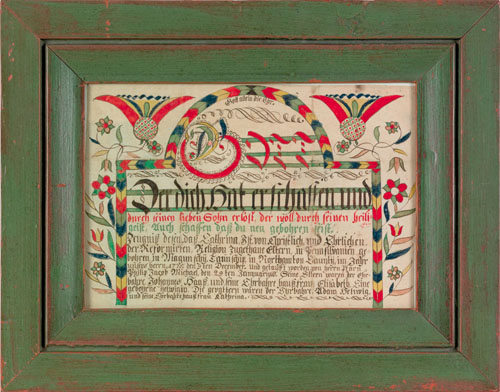 Gott allein die Ehre
Der dich hat erschaffen und
durch seinen lieben Sohn erlöst, der woll durch seinen heili-
geist. Auch schaffen daß du neu gebohren seist.
Zeugniß dessen, daß Cathrina, Ist von Christlich, und Ehrlichen,
der Reformirten, Religion Zugethane Eltern, in Pensilvanien ge-
bohren, in Magunschy Taunschip, in Northamton Caunty, im Jahr
unsers herrn December, und getauft worden von herrn
Philip Jacob Michael, den Seine Eltern waren der Ehr-
bahre Johannes Haaß, und seine Ehrbahre haussfrau Elisabeth, Eine
gebohrne Die waren der Ehrbahre Adam Hertwig,
und seine Ehrbahre haussfrau Cathrina.